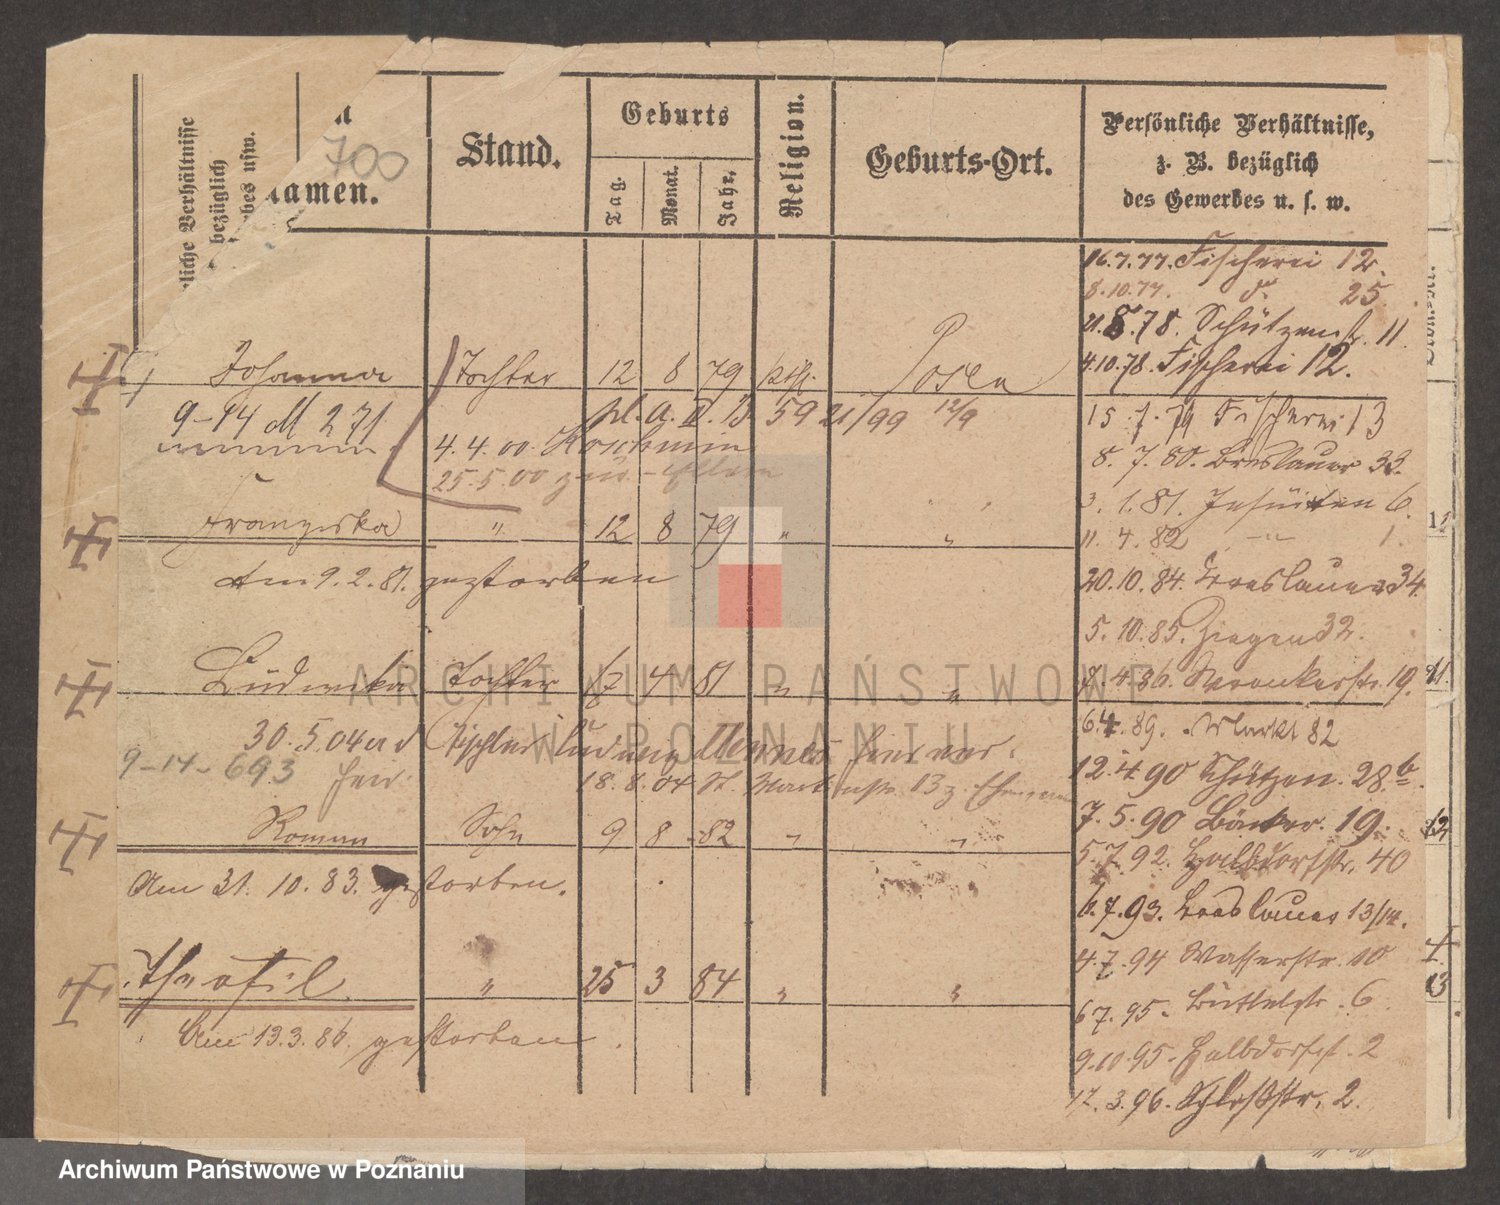 liche Verhältnisse
bezüglich
bes usw.
700
amen.
Stand.
Geburts
Tag.
Monat.
Jahr.
Religion.
Geburts-Ort.
Persönliche Verhältnisse,
z. B. bezüglich
des Gewerbes u. s. w.
16.7.77. Fischerei 12.
8.10.77. d. 25
21.8.78. Schützenstr. 11
4.10.78. Fischerei 12.
Johanna Tochter 12 8 79 kath. Posen
9-14 M 271 59 21/99 12/9
4.4.00. Koschmin
25.5.00 zur. Eltern
Franziska " 12 8 79 " "
Am 9.2.81. gestorben
Ludwika Tochter 17 4 81 " "
30.5.04 Tischler Ludwig
9-14-693
18.8.04 St. Martinstr. 13 z.
Roman Sohn 9 8 82 " "
Am 31.10.83. gestorben.
Theofil " 25 3 84 " "
Am 13.3.86. gestorben.
15.7.79 Fischerei 13
8.7.80. Breslauer 33.
3.1.81. Jesuiten 6.
11.4.82 -"- 1.
20.10.84. Breslauer 34
5.10.85. Ziegen 32.
8.4.86. Wronkerstr. 19.
6.4.89. Markt 82
12.4.90 Schützen. 28b.
7.5.90 Bäcker. 19.
5.7.92. Halbdorfstr. 40
6.7.93. Breslauer 13/14.
4.7.94 Wasserstr. 10
6.7.95. Büttelstr. 6
9.10.95. Halbdorfst. 2
17.3.96. Schloßstr. 2.
11.
12
13
ARCHIWUM PAŃSTWOWE
W POZNANIU
Archiwum Państwowe w Poznaniu